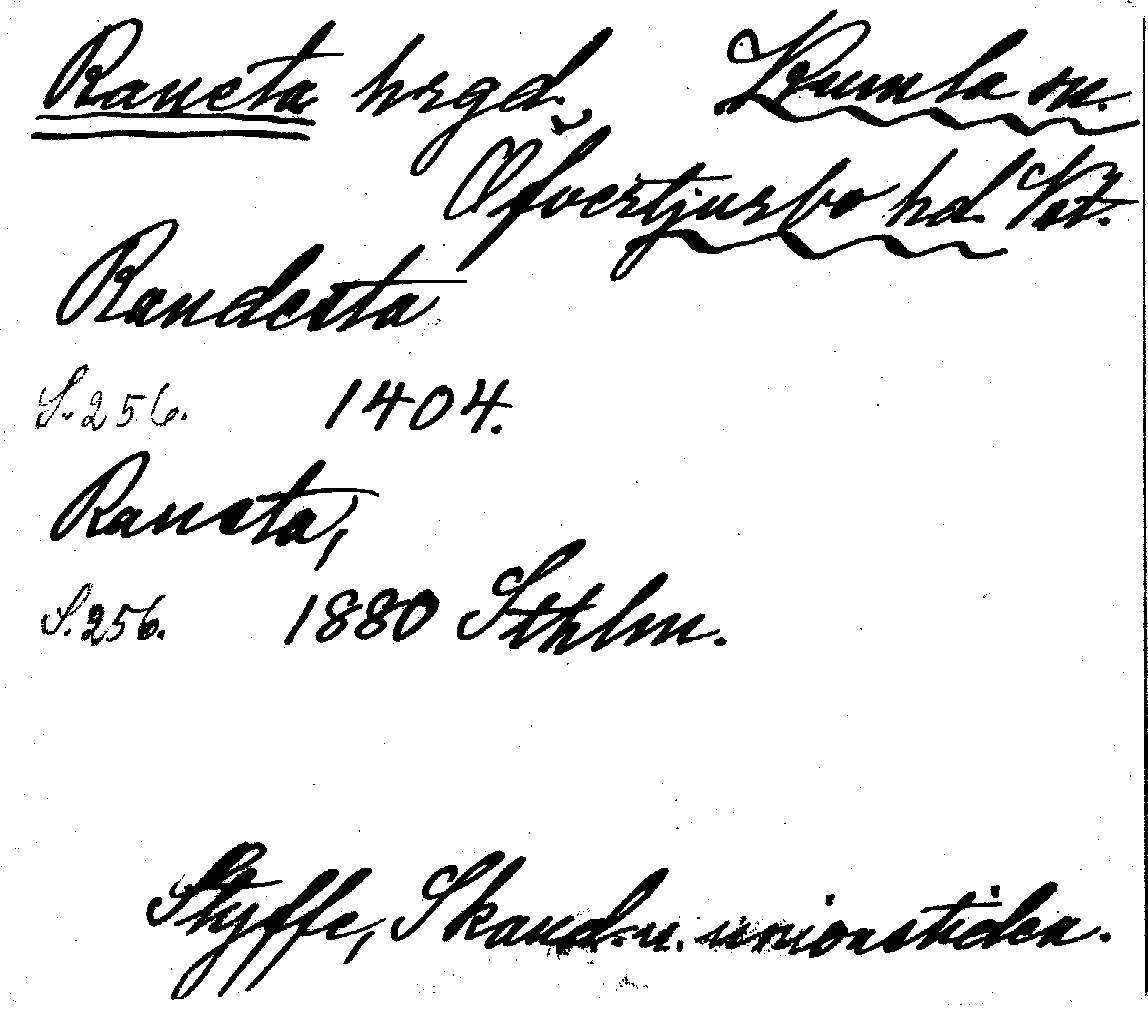 Ransta hrgd. Kumla sn.
Öfvertjurbo hd. Vst.
Randesta
S. 256. 1404.
Ransta,
S. 256. 1880 Sthlm.
Styffe, Skand. u. unionstiden.